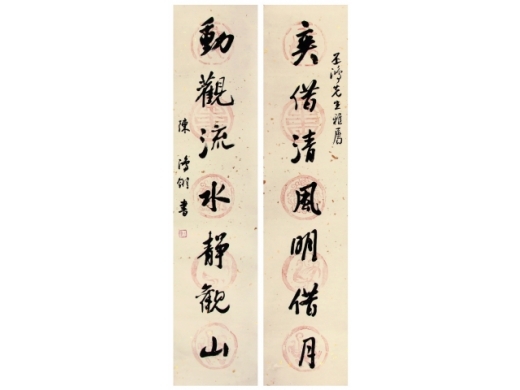 先生雅屬
爽借清風明借月
動觀流水靜觀山
陳 書